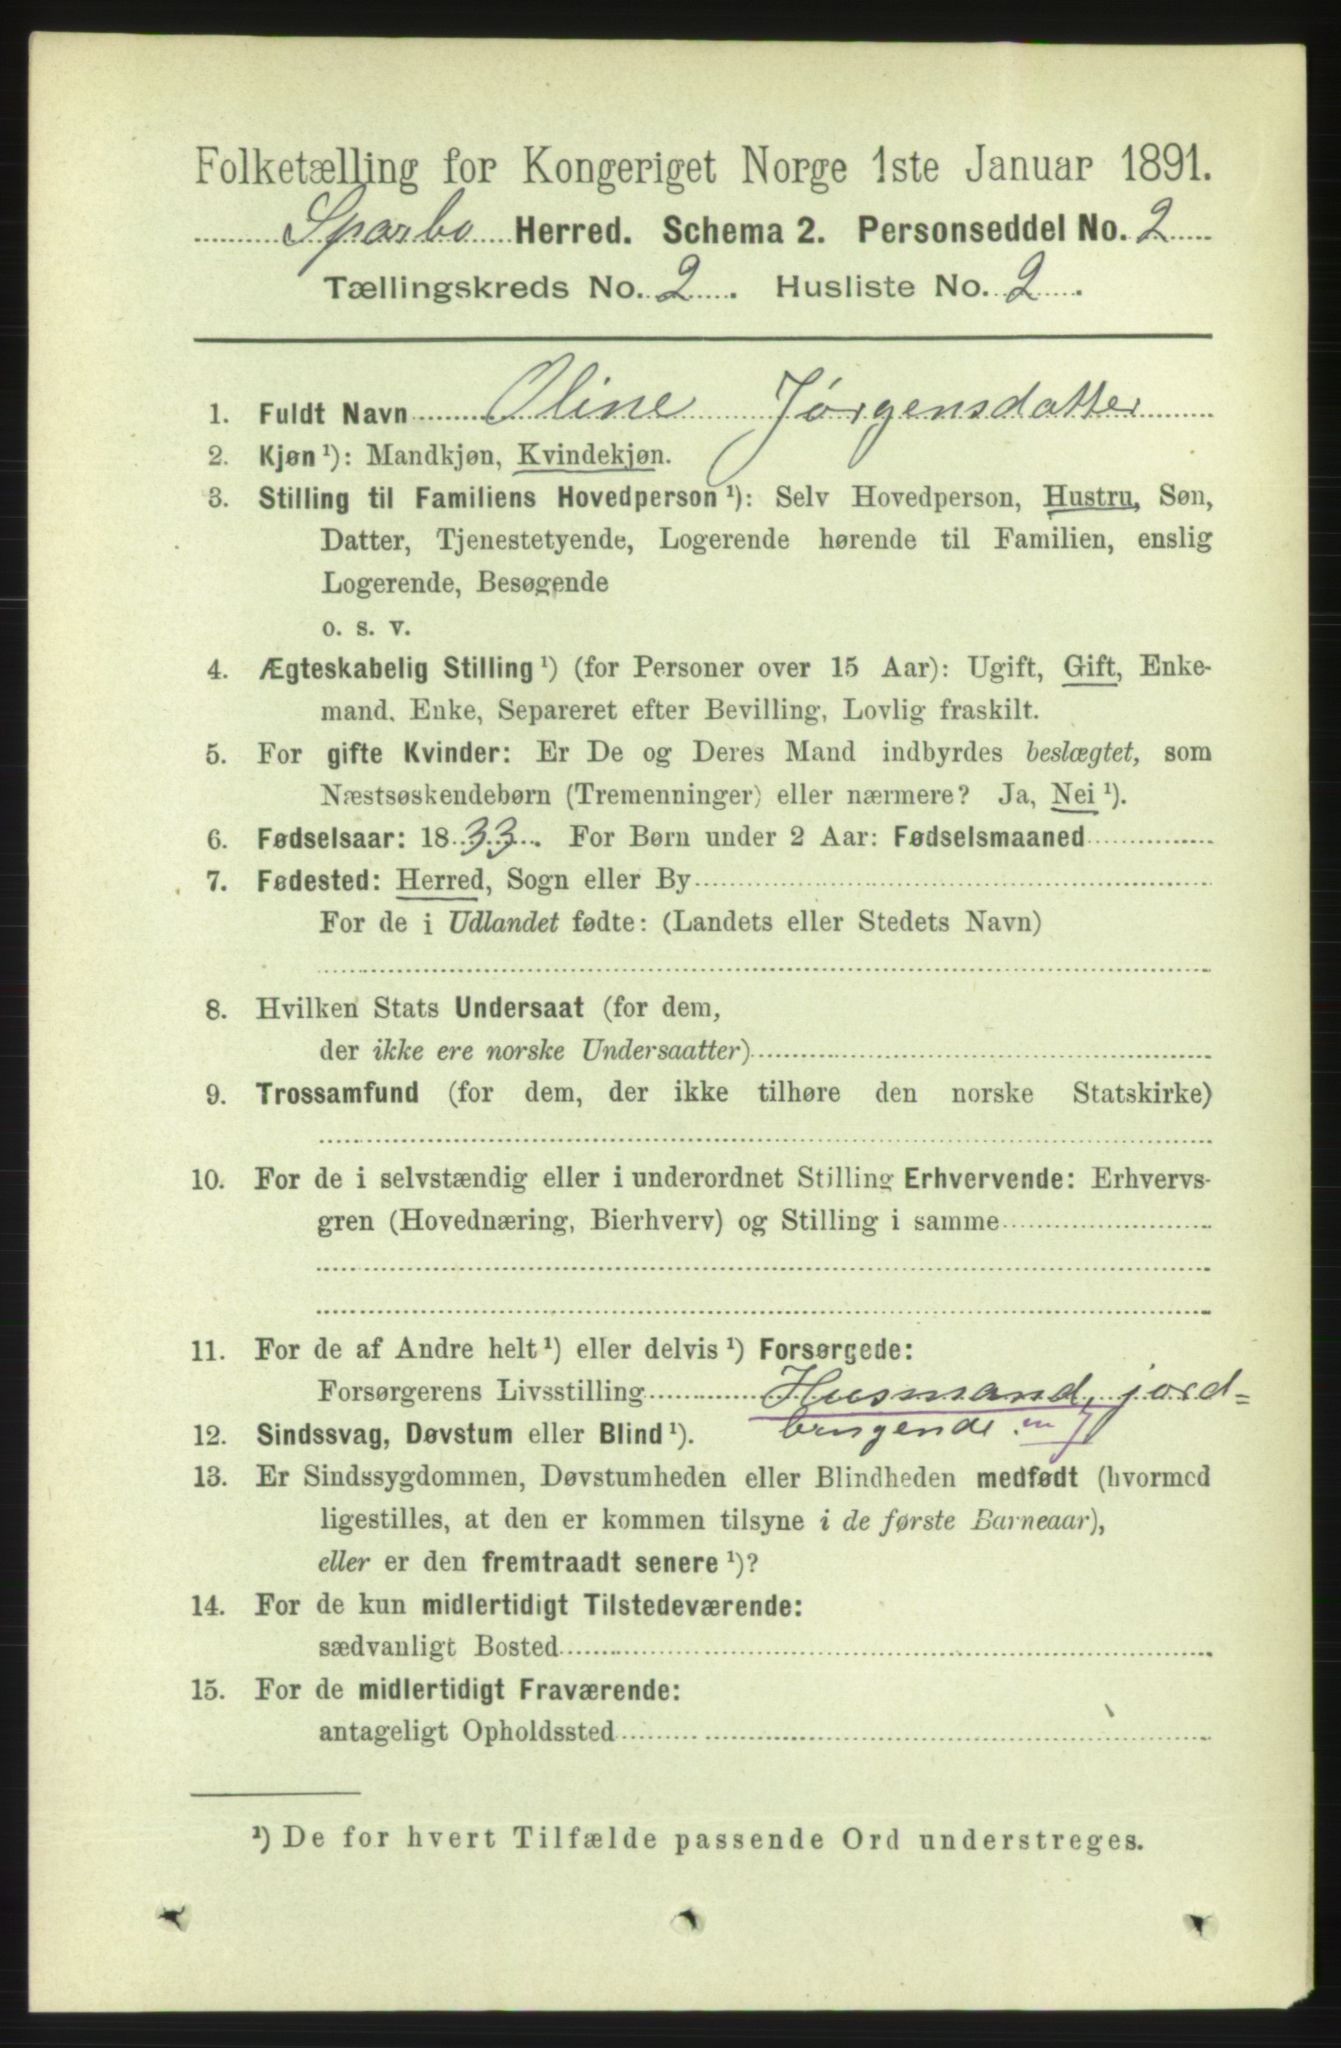 Folketælling for Kongeriget Norge 1ste Januar 1891.
Sparbo Herred. Schema 2. Personseddel No. 2
Tællingskreds No. 2. Husliste No. 2.
1. Fuldt Navn Oline Jørgensdatter
2. Kjøn ¹): Mandkjøn, Kvindekjøn.
3. Stilling til Familiens Hovedperson ¹): Selv Hovedperson, Hustru, Søn,
Datter, Tjenestetyende, Logerende hørende til Familien, enslig
Logerende, Besøgende
o. s. v.
4. Ægteskabelig Stilling ¹) (for Personer over 15 Aar): Ugift, Gift, Enke-
mand, Enke, Separeret efter Bevilling, Lovlig fraskilt.
5. For gifte Kvinder: Er De og Deres Mand indbyrdes beslægtet, som
Næstsøskendebørn (Tremenninger) eller nærmere? Ja, Nei ¹).
6. Fødselsaar: 1833. For Børn under 2 Aar: Fødselsmaaned
7. Fødested: Herred, Sogn eller By
For de i Udlandet fødte: (Landets eller Stedets Navn)
8. Hvilken Stats Undersaat (for dem,
der ikke ere norske Undersaatter)
9. Trossamfund (for dem, der ikke tilhøre den norske Statskirke)
10. For de i selvstændig eller i underordnet Stilling Erhvervende: Erhvervs-
gren (Hovednæring, Bierhverv) og Stilling i samme
11. For de af Andre helt ¹) eller delvis ¹) Forsørgede:
Forsørgerens Livsstilling Husmand, jord-
brugende
12. Sindssvag, Døvstum eller Blind ¹).
13. Er Sindssygdommen, Døvstumheden eller Blindheden medfødt (hvormed
ligestilles, at den er kommen tilsyne i de første Barneaar),
eller er den fremtraadt senere ¹)?
14. For de kun midlertidigt Tilstedeværende:
sædvanligt Bosted
15. For de midlertidigt Fraværende:
antageligt Opholdssted
¹) De for hvert Tilfælde passende Ord understreges.